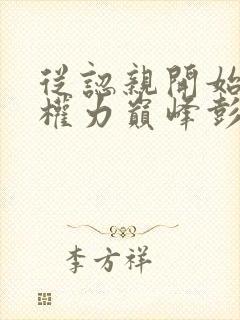 從認親開始
權力巔峰彭
李方祥